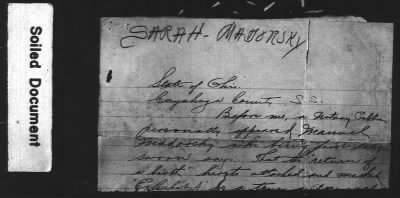 Soiled Document
SARAH - MADORSKY
State of Ohio
Cuyahoga County S.S.
Before me, a Notary Public
personally appeared Manuel
Madorsky who being first duly
sworn says. That the return of
a birth hereto attached and marked
"Exhibit A" is a